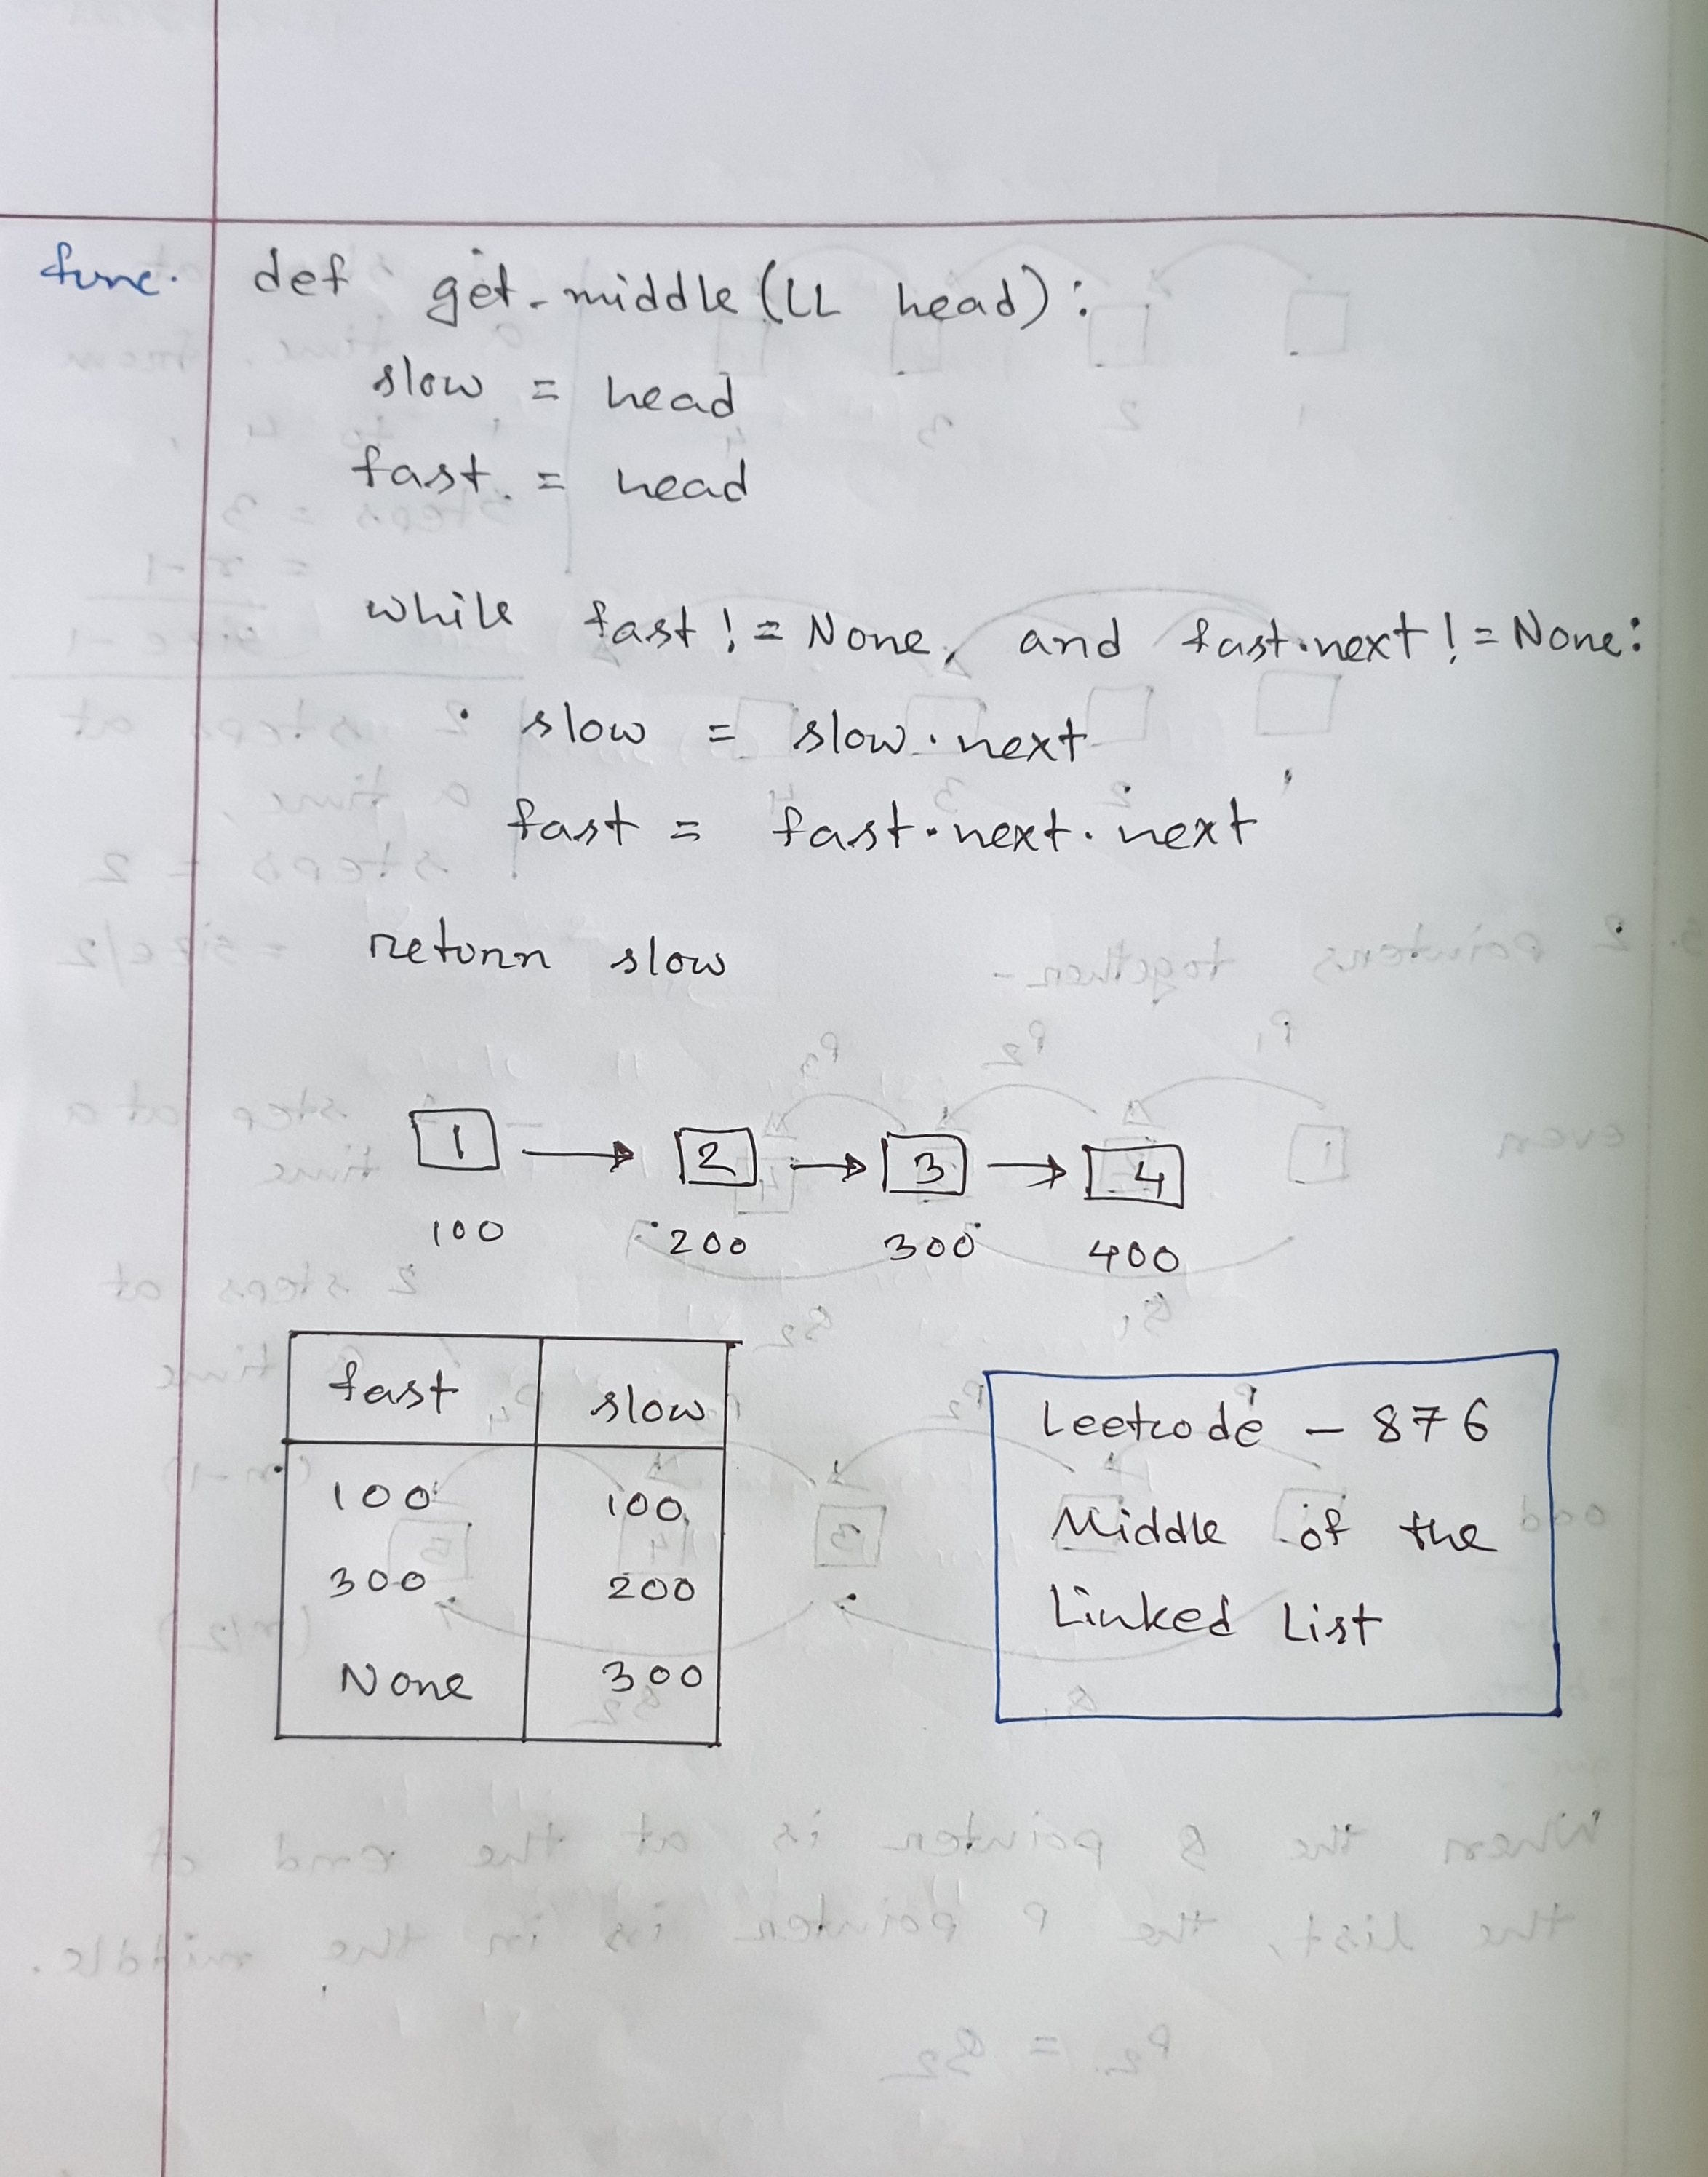 func. def get_middle(LL head):
slow = head
fast = head
while fast != None and fast.next != None:
slow = slow.next
fast = fast.next.next
return slow
1 → 2 → 3 → 4
100 200 300 400
fast slow
100 100
300 200
None 300
Leetcode - 876
Middle of the
Linked List